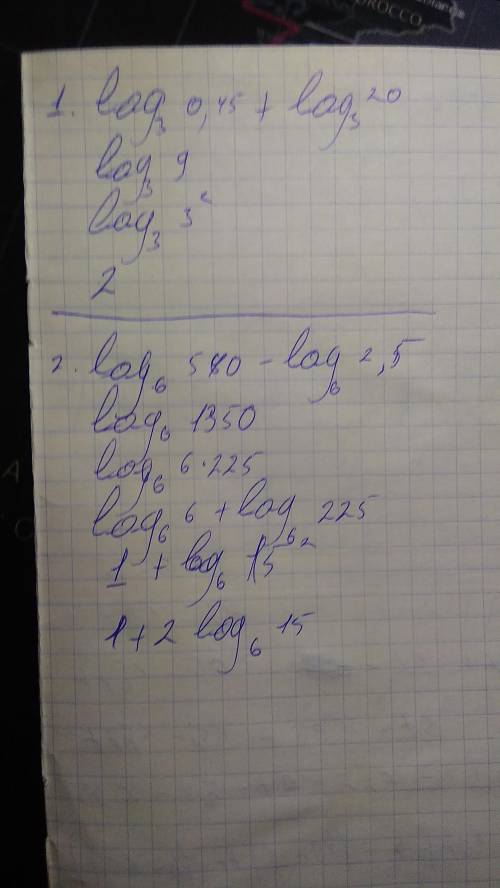 OROCCO
1. log₃ 0,45 + log₃ 20
log₃ 9
log₃ 3²
2
2. log₆ 540 - log₆ 2,5
log₆ 1350
log₆ 6·225
log₆ 6 + log₆ 225
1 + log₆ 15²
1 + 2 log₆ 15